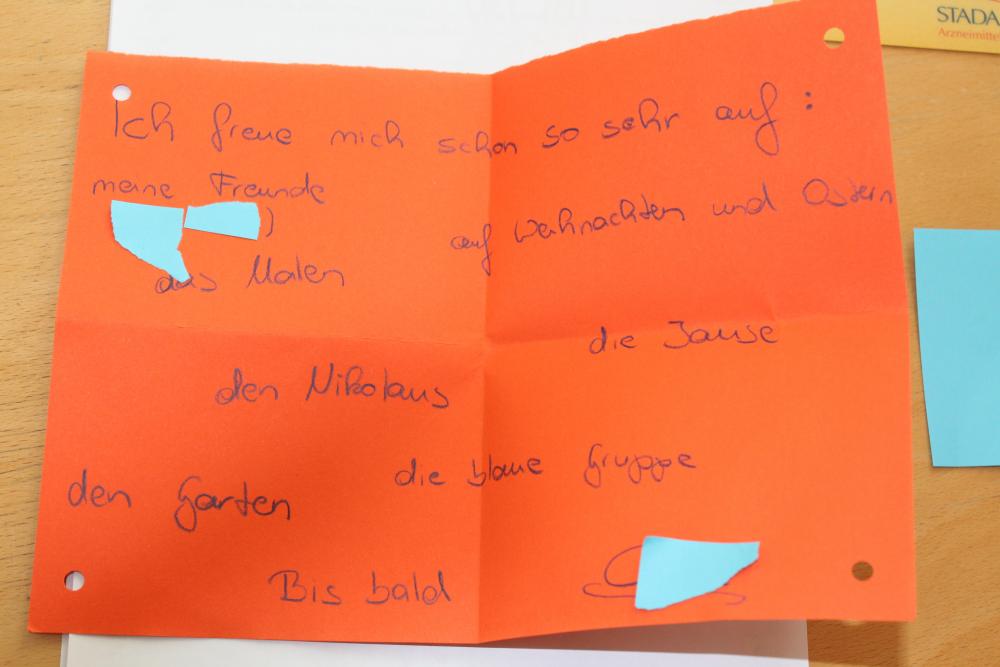 STADA
Arzneimitte
Ich freue mich schon so sehr auf :
meine Freunde
)
auf Weihnachten und Ostern
das Malen
die Jause
den Nikolaus
die blaue Gruppe
den Garten
Bis bald